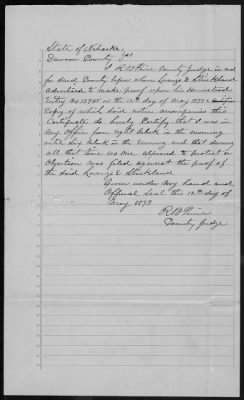 State of Nebraska
Dawson County } ss
I R B Pierce County Judge in and
for said County before whom Lorenzo E Strickland
advertised to make proof upon his Homestead
Entry No on the 12th day of May 1893 a
Copy of which said notice accompanies this
Certificate do hereby Certify that I was in
my Office from eight O'clock in the morning
until six O'clock in the evening and that during
all that time no one appeared to protest or
Objection was filed against the proof of
the said Lorenzo E Strickland
Given under my hand and
Official Seal this 12th day of
May 1893
R B Pierce
County Judge